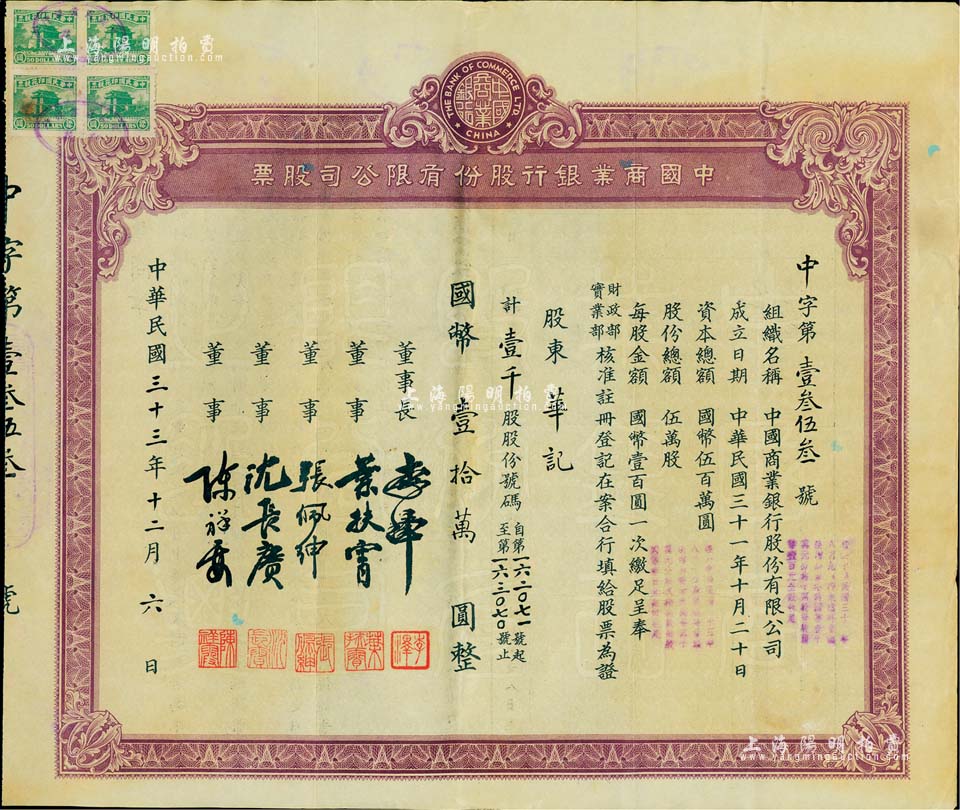 上海陽明拍賣
www.yangmingauction.com
中華民國印花稅票
50 DOLLARS
THE BANK OF COMMERCE LTD.
CHINA
中國商業銀行
中國商業銀行股份有限公司股票
中字第壹叁伍叁號
組織名稱 中國商業銀行股份有限公司
成立日期 中華民國三十一年十月二十日
資本總額 國幣伍百萬圓
股份總額 伍萬股
每股金額 國幣壹百圓一次繳足呈奉
財政部
實業部
核准註冊登記在案合行填給股票為證
股東 華記
計壹千股股份號碼
自第一六二〇七一號起
至第一六三〇七〇號止
國幣壹拾萬圓整
董事長 李澤
董事 葉扶霄
董事 張佩紳
董事 沈長賡
董事
中華民國三十三年十二月六日
中字第壹叁伍叁號
上海陽明拍賣
www.yangmingauction.com
上海陽明拍賣
www.yangmingauction.com